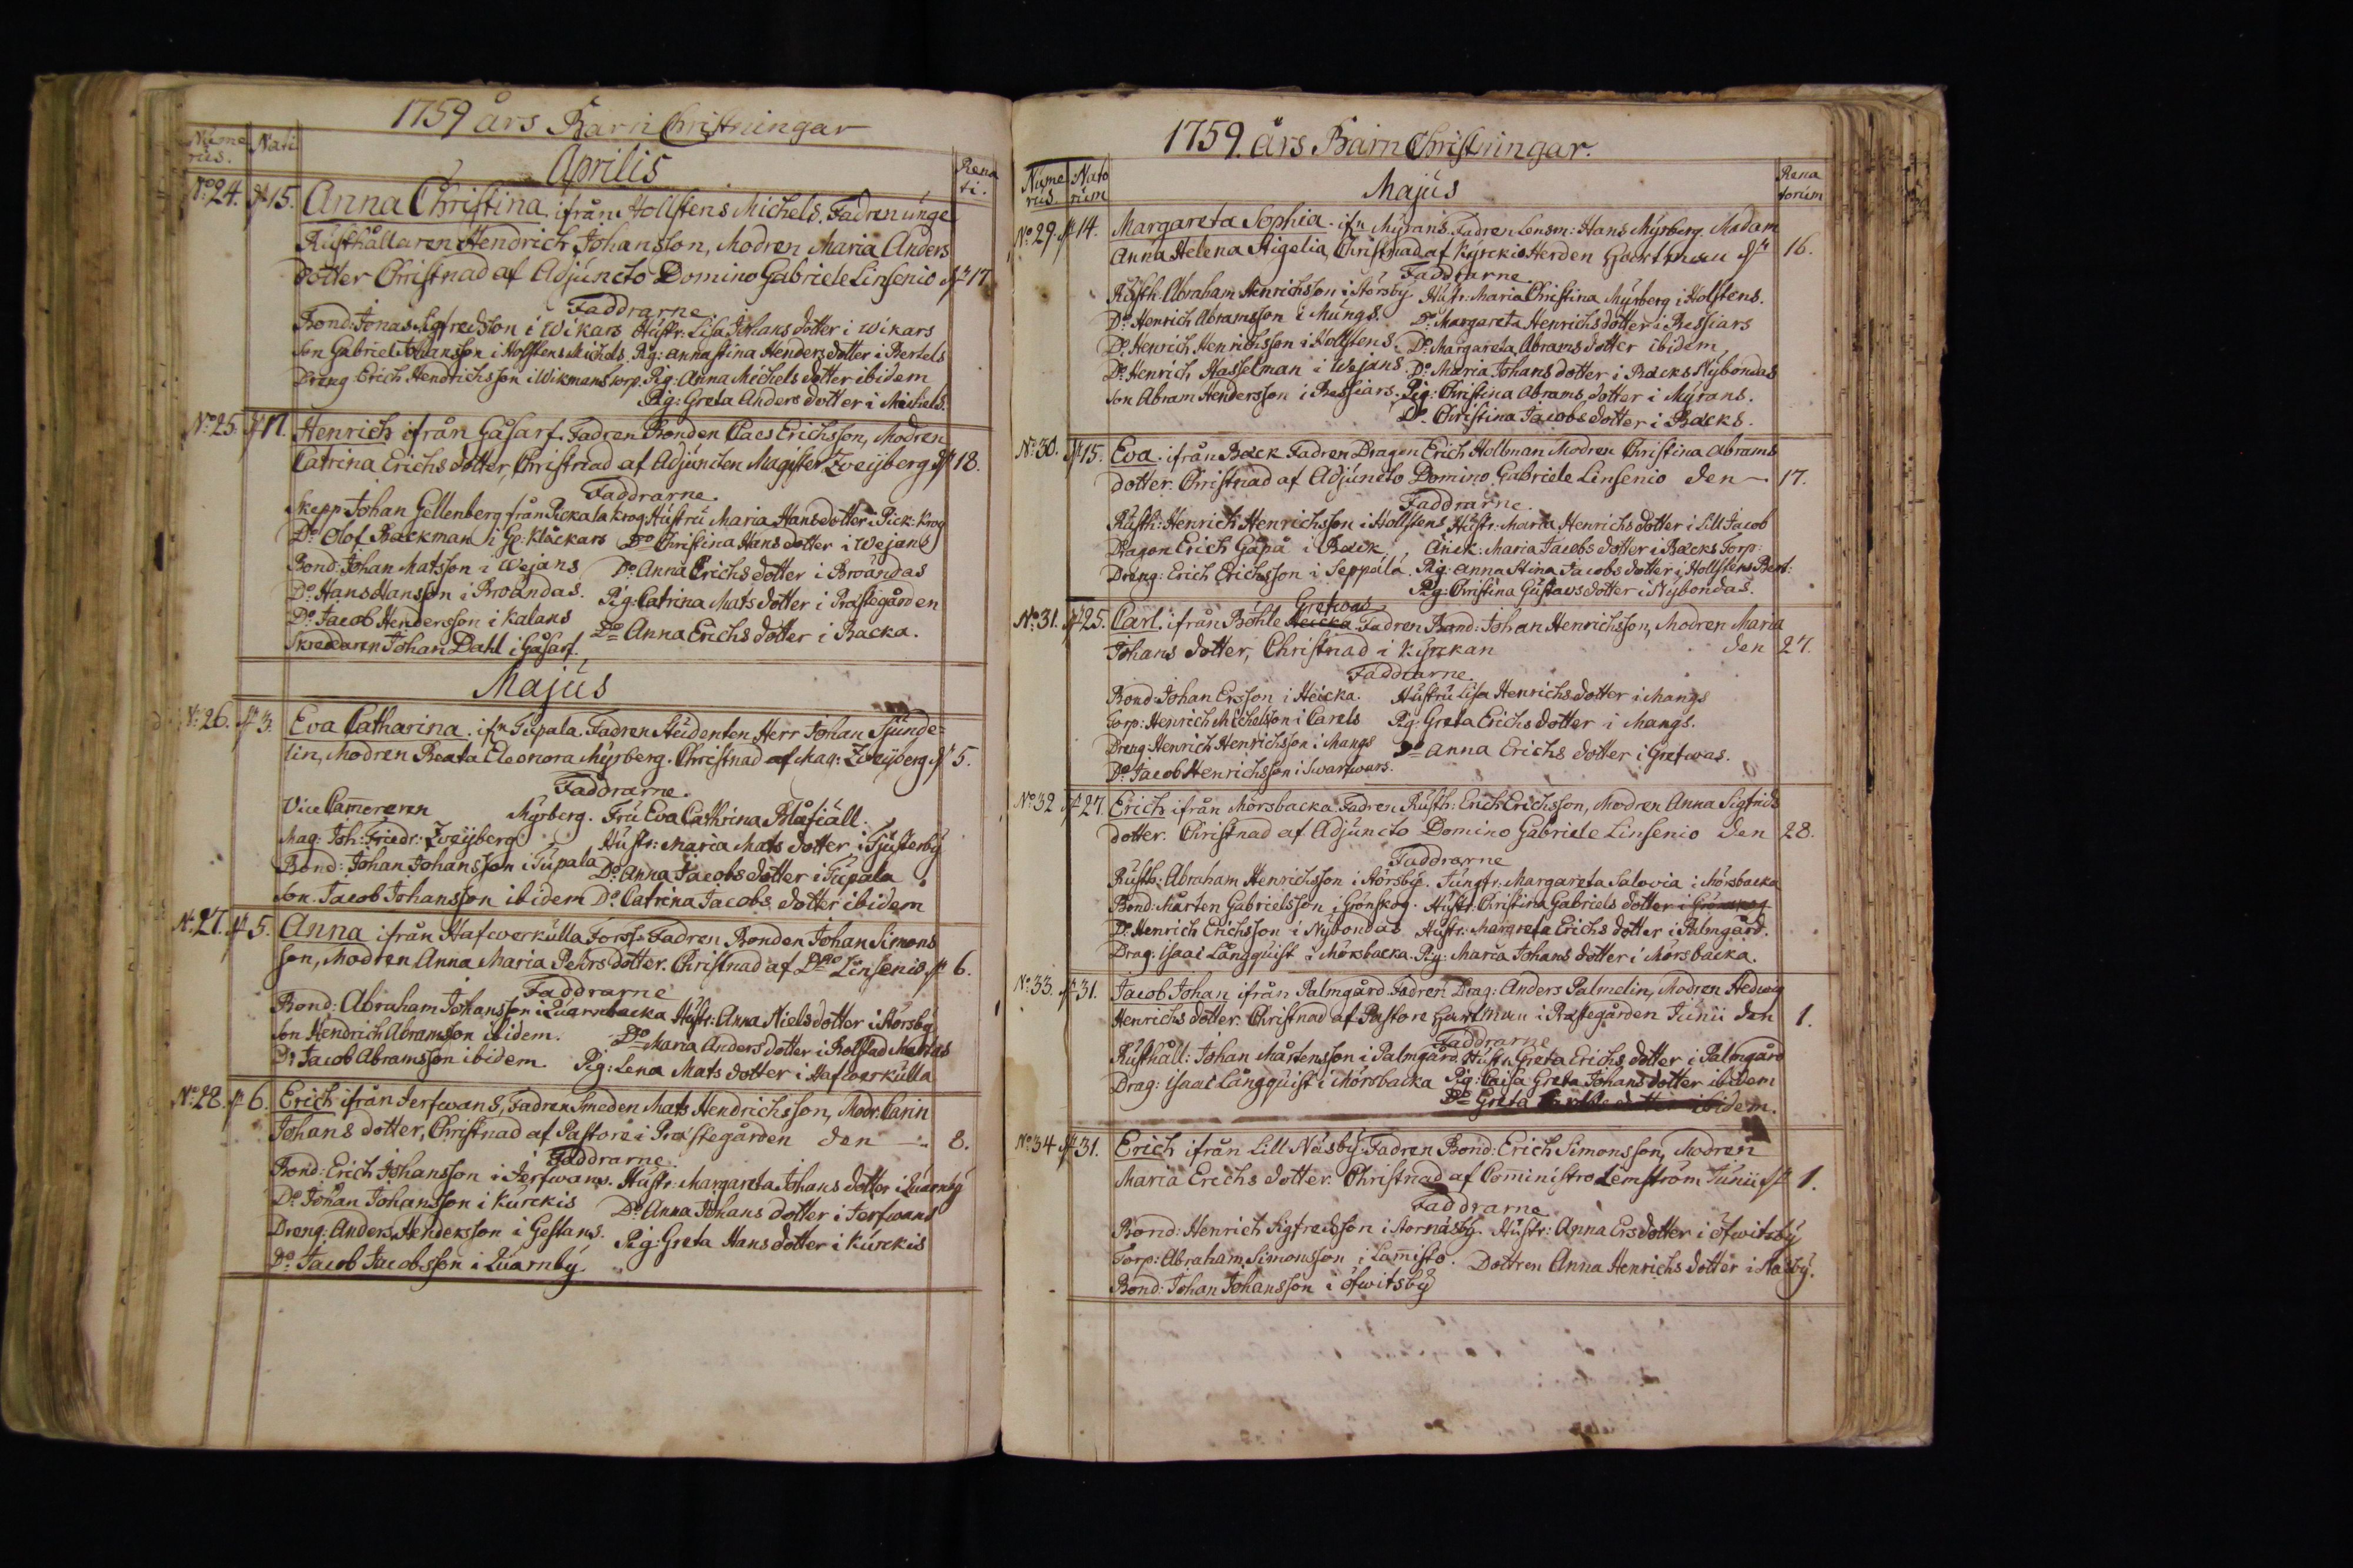 1759 års Barn Christningar
Nume Nati
rus.
Aprilis
Rena
ti.
No 24. 15. Anna Christina ifrån Hollstens Michels. Fadren unge
Rusthållaren Hendrich Johansson, Modren Maria Anders
dotter Christnad af Adjuncto Domino Gabriele Linsenio 17
Faddrarne
Bond: Jonas Sigfredsson i Wikars Hustr: Lisa Johans dotter i Wikars
Son Gabriel Johansson i Hollstens Michels Pig: Annastina Henders dotter i Bertels
Dräng Erich Hendrichsson i Wikmans torp. Pig: Anna Michels dotter ibidem
Pig: Greta Anders dotter i Michels.
No 25. 17. Henrich ifrån Gåsarf. Fadren Bonden Claes Erichsson, Modren
Catrina Erichs dotter, Christnad af Adjuncten Magister Zweijberg 18.
Faddrarne.
Skepp: Johan Gellenberg från Pickala krog. Hustru Maria Hansdotter i Pick: krog
Do Olof Backman i Klåckars Do Christina Hans dotter i Wejans
Bond: Johan Matsson i Wejans Do Anna Erichs dotter i Broändas
Do Hans Hansson i Broändas. Pig: Catrina Mats dotter i Prästegården
Do Jacob Hendersson i Kalans Do Anna Erichs dotter i Backa.
Skreddaren Johan Dahl i Gåsarf.
Majus
No 26. 3. Eva Catharina. ifn Tupala. Fadren Studenten Herr Johan Sjunde=
lin, Modren Beata Eleonora Myrberg. Christnad af Mag: Zweijberg 5.
Faddrarne.
Vice Cammereren Myrberg. Fru Eva Cathrina Blåfiäll.
Mag: Joh: Friedr: Zweijberg Hustr: Maria Mats dotter i Gjusterby
Bond: Johan Johansson i Tupala Do Anna Jacobs dotter i Tupala
Son Jacob Johansson ibidem Do Catrina Jacobs dotter ibidem
No 27. 5. Anna ifrån Hafwerkulla Torp. Fadren Bonden Johan Simons
son, Modren Anna Maria Pehrs dotter. Christnad af Dno Linsenio 6.
Faddrarne
Bond: Abraham Johansson i Quarnbacka Hustr: Anna Niels dotter i Störsby
Son Hendrich Abramsson ibidem. Do Maria Anders dotter i Bolstad
Do Jacob Abramsson ibidem. Pig: Lena Mats dotter i Hafwerkulla
No 28. 6. Erich ifrån Jerfwans, Fadren Smeden Mats Hendrichsson, Modr: Carin
Johans dotter, Christnad af Pastore i Prästegården den 8.
Faddrarne.
Bond: Erich Johansson i Jerfwans. Hustr: Margareta Johans dotter i Quarnby
Do Johan Johansson i Kurckis Do Anna Johans dotter i Jerfwans
Dreng: Anders Hendersson i Gestans. Pig: Greta Hans dotter i Kurckis
Do Jacob Jacobsson i Quarnby.
1759. års Barn Christningar.
Nume Nato
rus. rum
Majus
Rena
torum
No 29. 14. Margareta Sophia. ifn Myrans. Fadren Lensm: Hans Myrberg. Madam
Anna Helena Stigelia, Christnad af Kyrckio Herden 16.
Faddrarne
Rusth: Abraham Henrichsson i Störsby Hustr: Maria Christina Myrberg i Holstens.
Do Henrich Abramsson i Mungs. Do Margareta Henrichs dotter i Bessiars
Do Henrich Henrichsson i Hollstens. Do Margareta Abrams dotter ibidem
Do Henrich Hasselman i Wejans. Do Maria Johans dotter i Backs Nybondas
Son Abram Hendersson i Bessiars. Pig: Christina Abrams dotter i Myrans.
Do Christina Jacobs dotter i Backs.
No 30. 15. Eva. ifrån Back Fadren Dragon Erich Holman Modren Christina Abrams
dotter. Christnad af Adjuncto Domino Gabriele Linsenio den 17.
Faddrarne.
Rusth: Henrich Henrichsson i Hollstens Hustr: Maria Henrichs dotter i Lill Jacob
Dragon Erich Gåpå i Back Änck: Maria Jacobs dotter i Backs Torp:
Dräng: Erich Erichsson i Seppälä. Pig: Anna Stina Jacobs dotter i Hollstens Bert:
Pig: Christina Gustavs dotter i Nybondas.
Grefwas
No 31. 25. Carl. ifrån Böhle Heicka Fadren Bond: Johan Henrichsson, Modren Maria
Johans dotter, Christnad i Kyrckan den 27.
Faddrarne.
Bond: Johan Ersson i Heicka. Hustru Lisa Henrichs dotter i Mangs
Torp: Henrich Michelsson i Carels Pig: Greta Erichs dotter i Mangs.
Dreng: Henrich Henrichsson i Mangs Do Anna Erichs dotter i Grefwas.
Do Jacob Henrichsson i Swartwars.
No 32 27. Erich ifrån Mörsbacka. Fadren Rusth: Erich Erichsson, Modren Anna Sigfrids
dotter. Christnad af Adjuncto Domino Gabriele Linsenio den 28.
Faddrarne
Rusth: Abraham Henrichsson i Störsby. Jungfr: Margareta Salovia i Mörsbacka
Bond: Mårten Gabrielsson i Grönskog. Hustr: Christina Gabriels dotter i Grönskog
Do Henrich Erichsson i Nybondas Hustr: Margreta Erichs dotter i Palmgård.
Drag: Isaac Långquist i Mörsbacka. Pig: Maria Johans dotter i Mörsbacka.
No 33. 31. Jacob Johan ifrån Palmgård Fadren Drag: Anders Palmelin, Modren Hedwig
Henrichs dotter. Christnad af Pastore Hartman i Prestegården Junii den 1.
Faddrarne
Rusthåll: Johan Mårtensson i Palmgård Hustr: Greta Erichs dotter i Palmgård
Drag: Isaac Långquist i Mörsbacka Pig: Caisa Greta Johans dotter ibidem
Do Greta dotter ibidem.
No 34 31. Erich ifrån Lill Näsby. Fadren Bond: Erich Simonsson, Modren
Maria Erichs dotter. Christnad af Comministro Lemström Junii 1.
Faddrarne
Bond: Henrich Sigfredsson i Stornäsby. Hustr: Anna Ersdotter i Öfwitsby
Torp: Abraham Simonsson i Lamisto. Dottren Anna Henrichs dotter i Näsby.
Bond: Johan Johansson i Öfwitsby